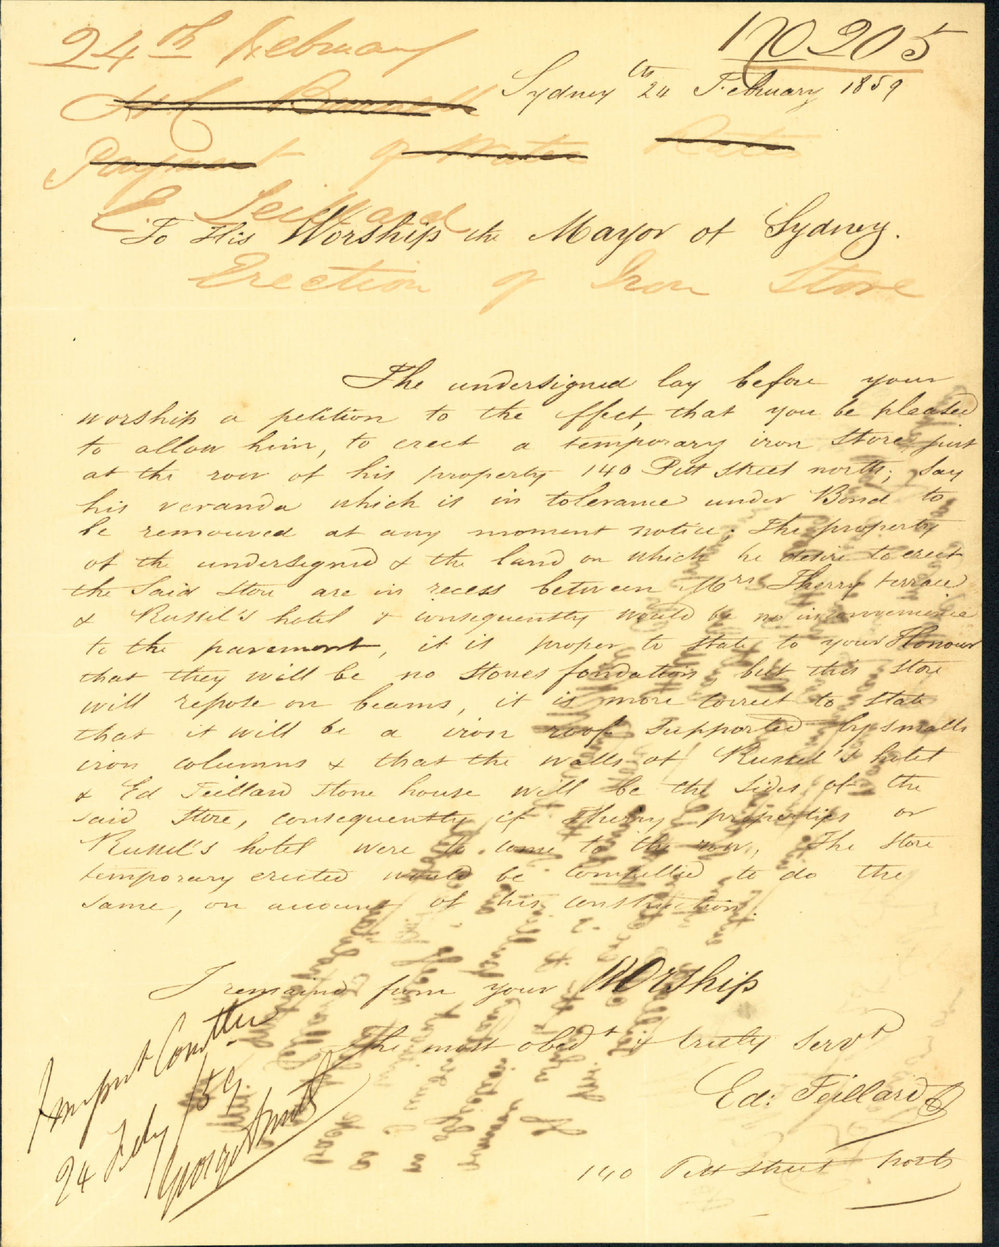 No 205
24th February
Sydney 24th February 1859
Payment of Water Rates
E. Teillard
To His Worship the Mayor of Sydney.
Erection of Iron Store
The undersigned lay before your
worship a petition to the effect, that you be pleased
to allow him, to erect a temporary iron store, just
at the row of his property 140 Pitt Street north; say
his veranda which is in tolerance under Bond to
be removed at any moment notice. The property
of the undersigned & the land on which he desire to erect
the said store are in recess between Mrs Therry terrace
& Russel's hotel & consequently would be no inconvenience
to the pavement, it is proper to state to your Honour
that they will be no stones fondation, but this store
will repose on beams, it is more correct to state
that it will be a iron roof supported by smalls
iron columns & that the walls of Russel's hotel
& Ed Teillard stone house will be the sides of the
said store, consequently if Therry properties or
Russel's hotel were to come to the row, The store
temporary erected would be compelled to do the
same, on account of his construction.
I remained from your Worship
The most obedt & truely servt
Ed: Teillard
140 Pitt Street North
Improvt Comttee
24 Feby /59
George Smith